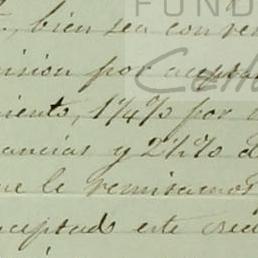 FUND
, bien sea con ve
ision por acepta
iento, 1/4% por
ancias y 2 1/2% d
ue le remisamos
ceptado este cred